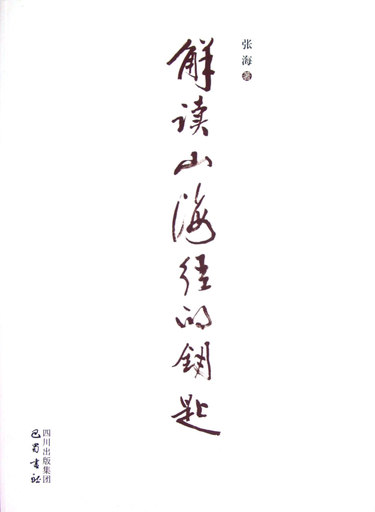 张海 著
解读山海经的钥匙
四川出版集团
巴蜀书社